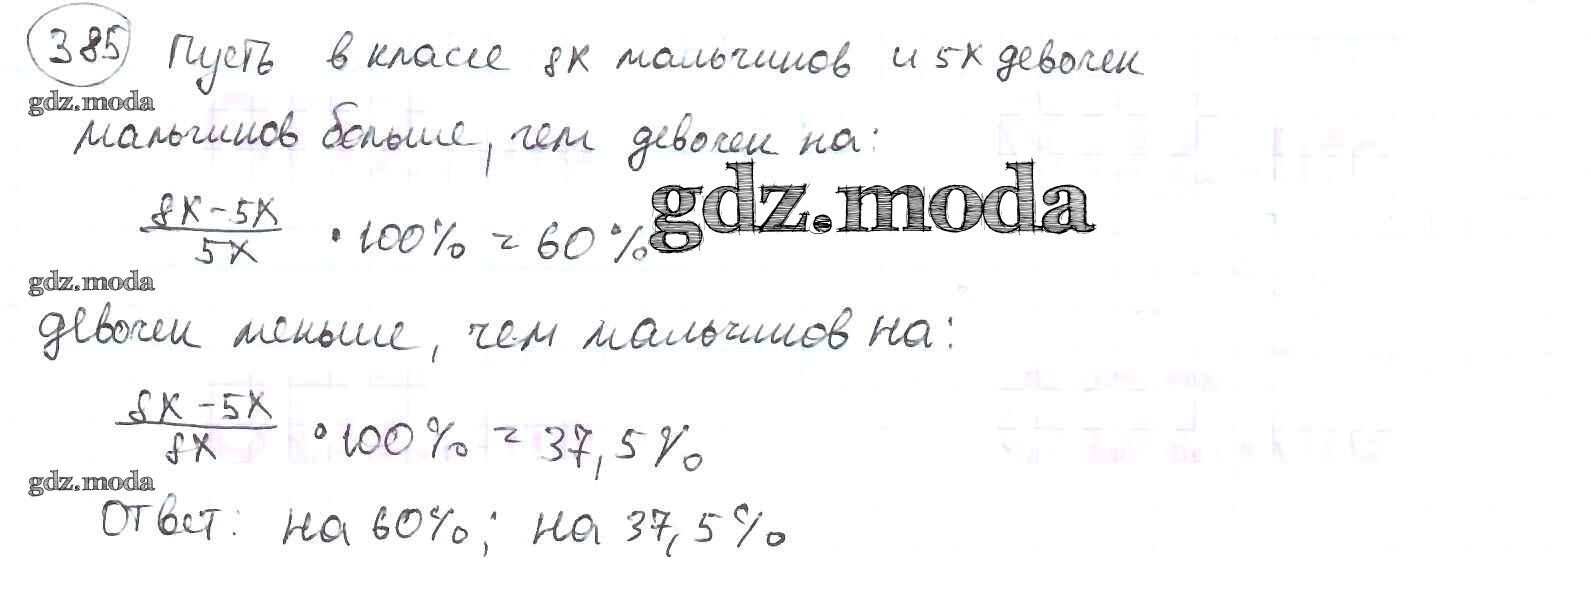 385 Пусть в классе 8x мальчиков и 5x девочек
gdz.moda
мальчиков больше, чем девочек на:
gdz.moda
8x - 5x / 5x · 100% = 60%
gdz.moda
девочек меньше, чем мальчиков на:
8x - 5x / 8x · 100% = 37,5%
gdz.moda
Ответ: на 60%; на 37,5%